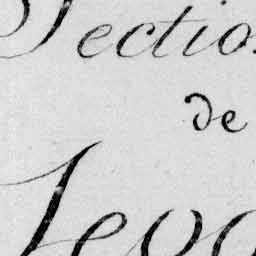 Sectio
de
Levo